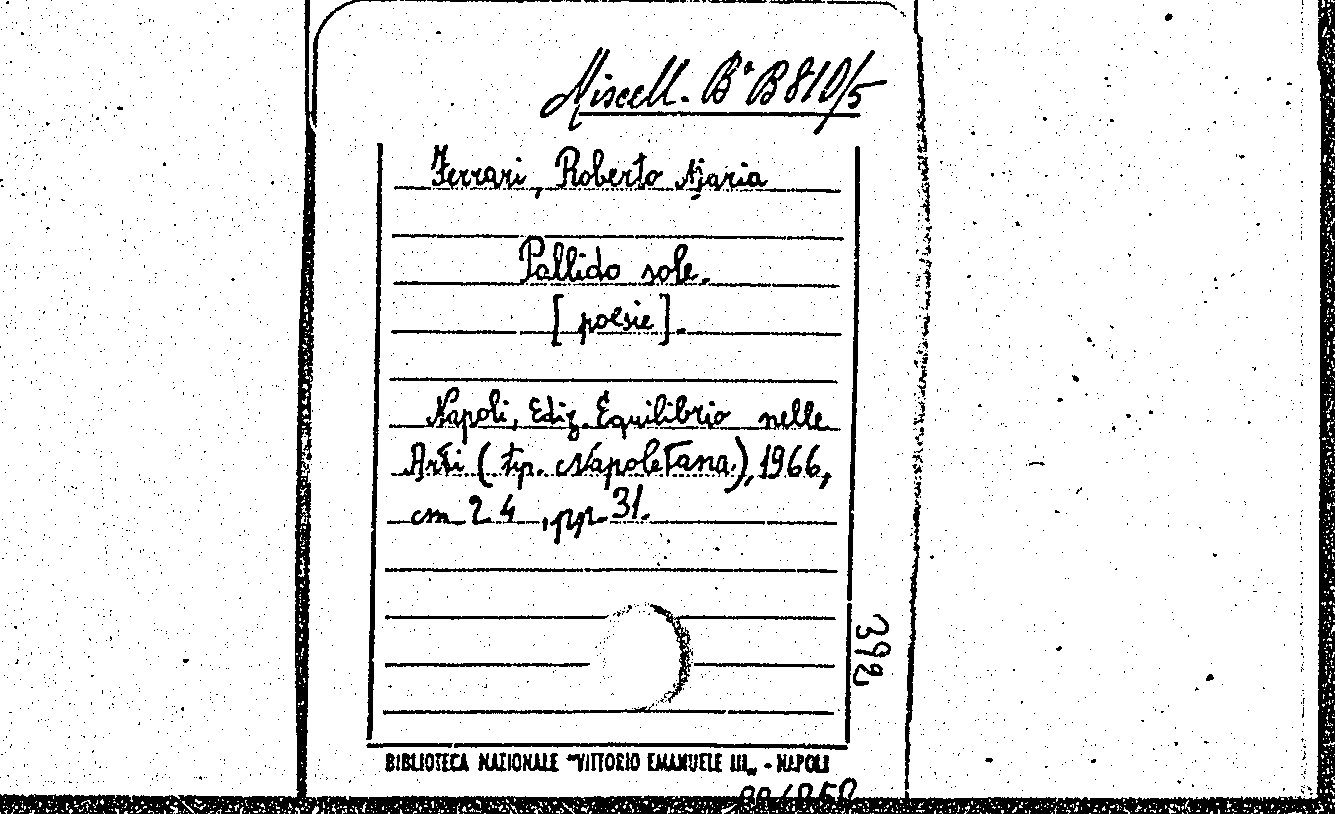 Miscell. Bª B 810/5
Ferrari, Roberto Maria
Pallido sole.
[poesie].
Napoli, Ediz. Equilibrio nelle
Arti (tip. Napoletana), 1966,
cm 24, pp. 31.
392
BIBLIOTECA NAZIONALE "VITTORIO EMANUELE III„ - NAPOLI